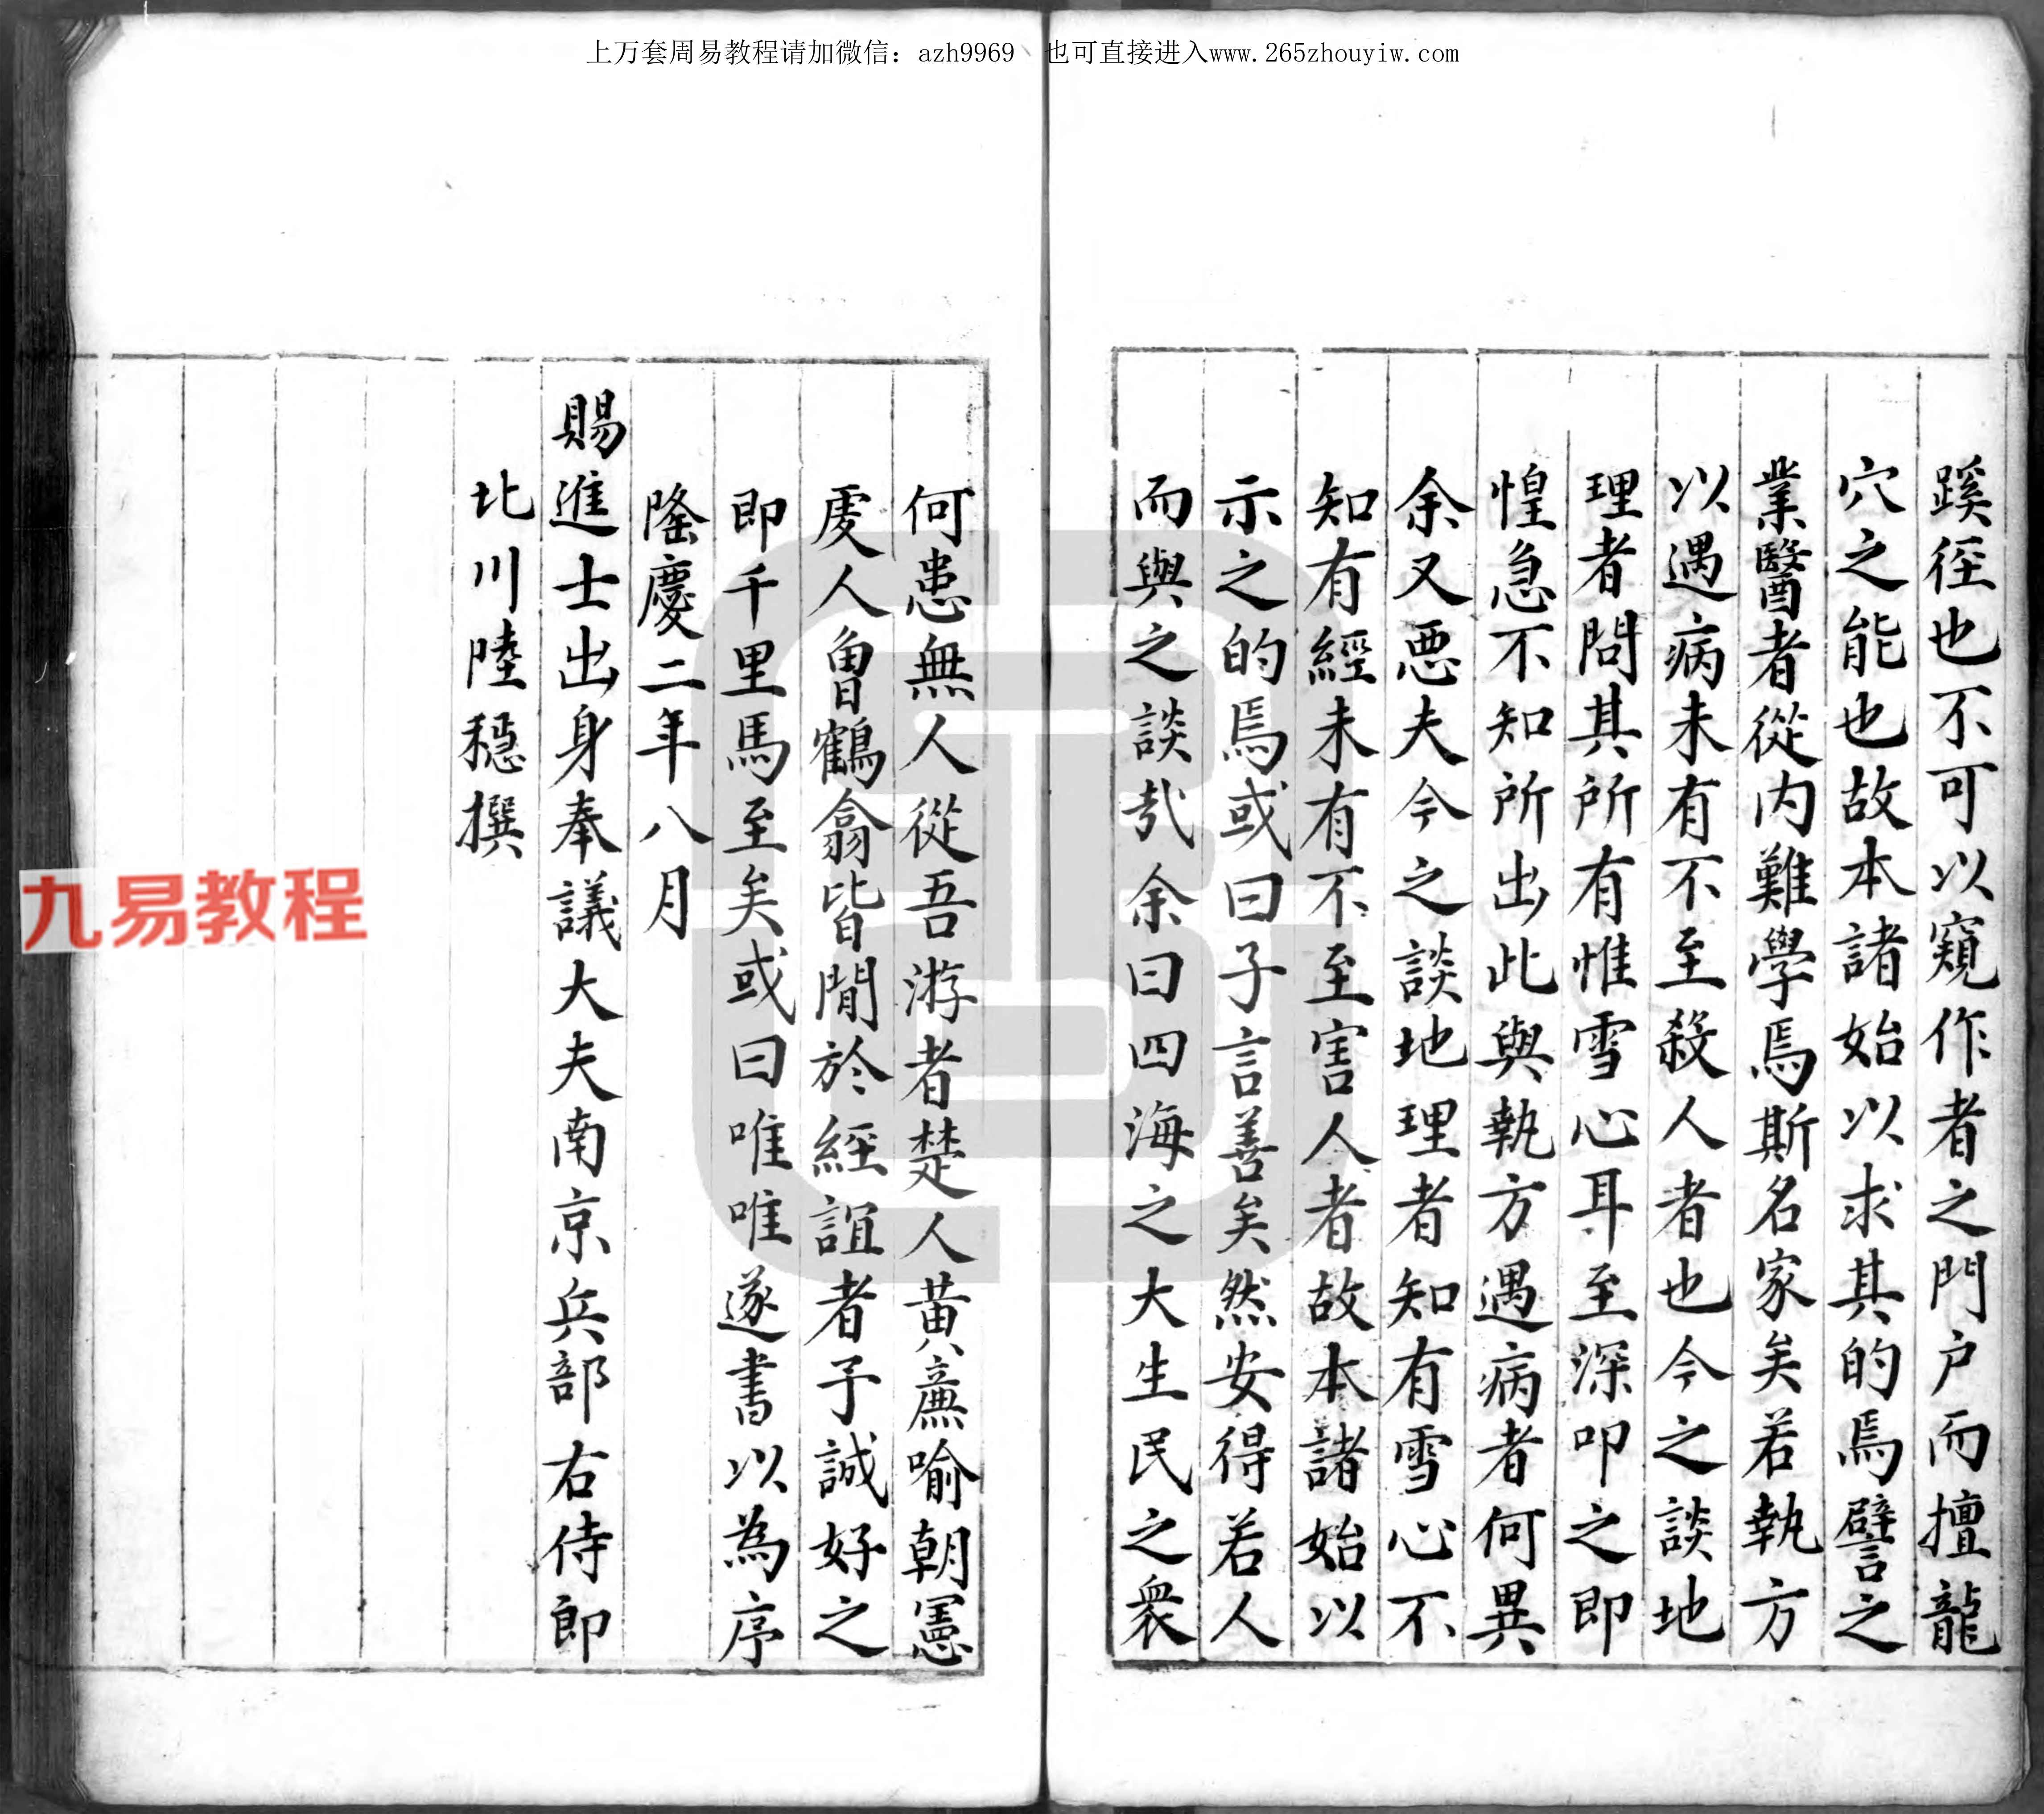 上万套周易教程请加微信：azh9969　也可直接进入www.265zhouyiw.com
蹊徑也不可以窺作者之門户而擅龍
穴之能也故本諸始以求其的焉譬之
業醫者從内難學焉斯名家矣若執方
以遇病未有不至殺人者也今之談地
理者問其所有惟雪心耳至深叩之即
惶急不知所出此與執方遇病者何異
余又悪夫今之談地理者知有雪心不
知有經未有不至害人者故本諸始以
示之的焉或曰子言善矣然安得若人
而與之談㢤余曰四海之大生民之衆
何患無人從吾游者楚人黄廉喻朝憲
虔人曾鶴翕皆聞於經誼者予誠好之
即千里馬至矣或曰唯唯遂書以為序
隆慶二年八月
賜進士出身奉議大夫南京兵部右侍郎
北川陸穩撰
九易教程